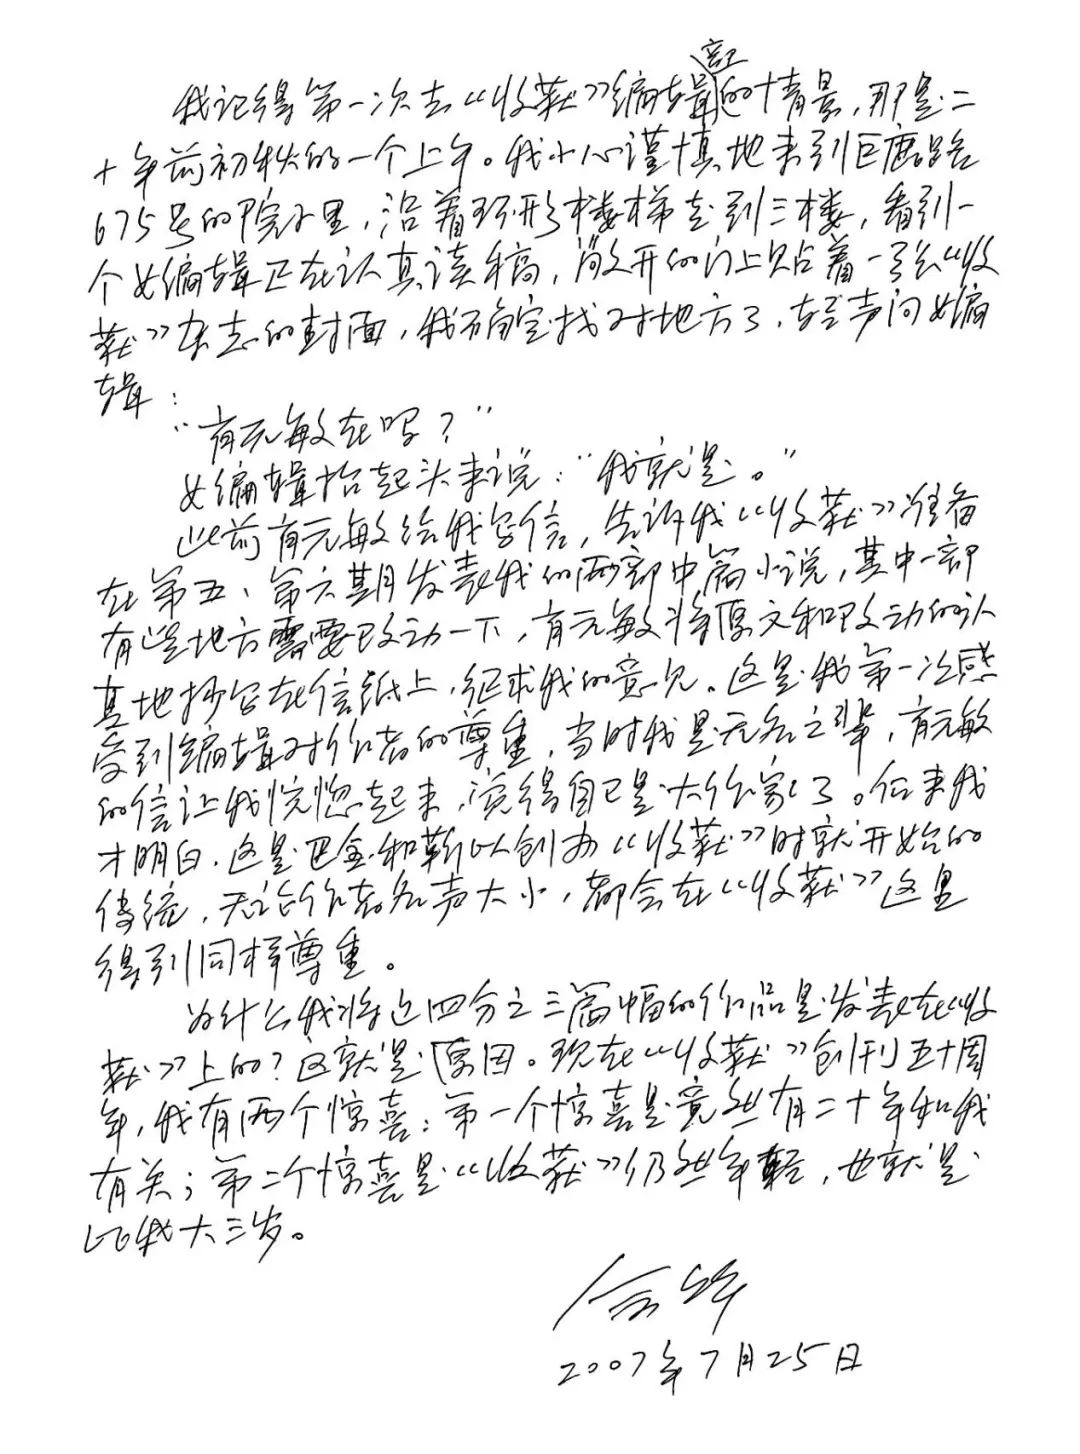 我记得第一次去《收获》编辑部的情景，那是二
十年前初秋的一个上午。我小心谨慎地来到巨鹿路
675号的院子里，沿着环形楼梯走到三楼，看到一
个女编辑正在认真读稿，敞开的门上贴着一张《收
获》杂志的封面，我确定找对地方了，轻声问女编
辑：
“肖元敏在吗？”
女编辑抬起头来说：“我就是。”
此前肖元敏给我写信，告诉我《收获》准备
在第五、第六期发表我的两部中篇小说，其中一部
有些地方需要改动一下，肖元敏将原文和改动的认
真地抄写在信纸上，征求我的意见。这是我第一次感
受到编辑对作者的尊重，当时我是无名之辈，肖元敏
的信让我恍惚起来，觉得自己是大作家了。后来我
才明白，这是巴金和靳以创办《收获》时就开始的
传统，无论作者名声大小，都会在《收获》这里
得到同样尊重。
为什么我将近四分之三篇幅的作品是发表在《收
获》上的？这就是原因。现在《收获》创刊五十周
年，我有两个惊喜：第一个惊喜是竟然有二十年和我
有关；第二个惊喜是《收获》仍然年轻，也就是
比我大三岁。
余华
2007年7月25日